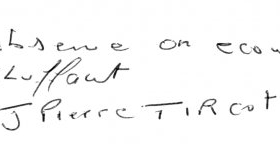 absence on econ
sufflant
J Pierre TIRCOT